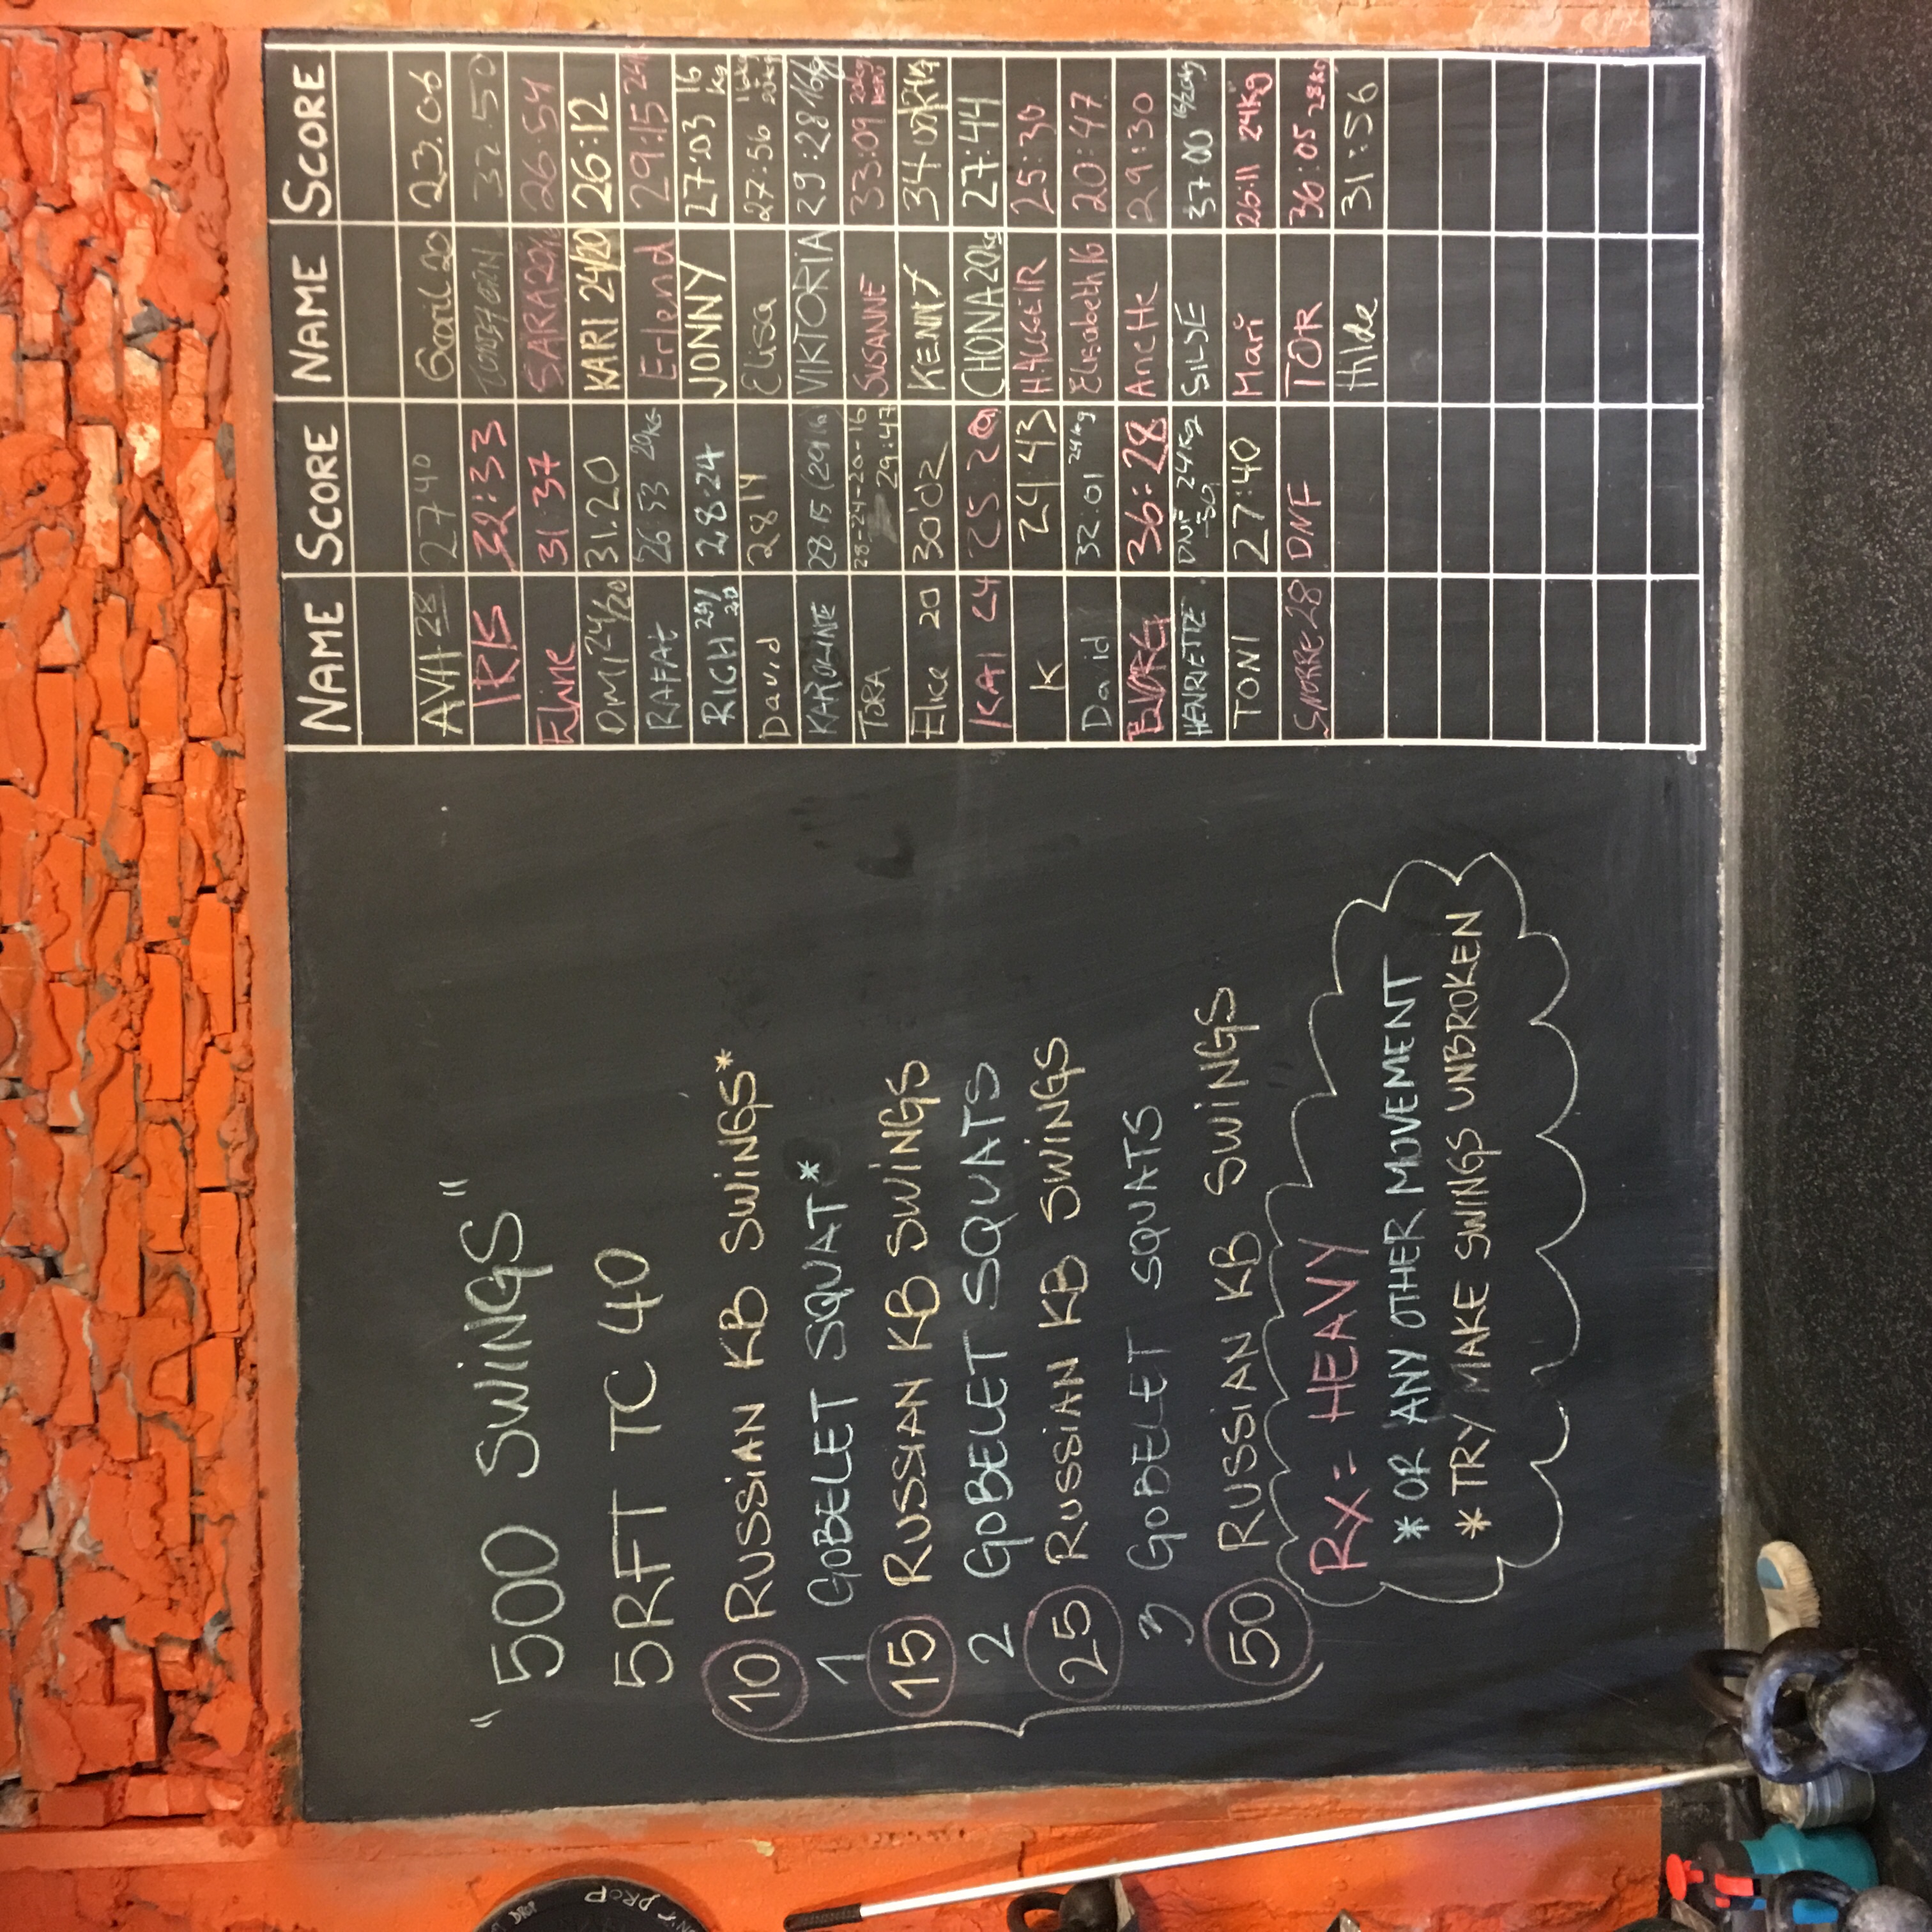 "500 SWINGS"
5RFT TC 40
10 RUSSIAN KB SWINGS*
1 GOBELET SQUAT*
15 RUSSIAN KB SWINGS
2 GOBELET SQUATS
25 RUSSIAN KB SWINGS
3 GOBELET SQUATS
50 RUSSIAN KB SWINGS
RX = HEAVY
* OR ANY OTHER MOVEMENT
* TRY MAKE SWINGS UNBROKEN
NAME SCORE NAME SCORE
28 27 40 20 23.06
IRIS 32:33 32:50
Eline 31:37 SARA 26:54
OMI 24/20 31.20 KARI 24/20 26:12
RAFAt 26:53 20kg Erlend 29:15
RICH 24/20 28:24 JONNY 27:03 16 kg
David 28 14 Elisa 27:56
KAROLINE 28 15 VIKTORIA 29:28 16kg
TORA 28-24-20-16 29:47 SUSANNE 33:09 20kg
Elice 20 30'02 KENNY 34
KAI 24 25:20 CHONA 20kg 27:44
K 24 43 25:30
David 32:01 24kg Elisabeth 16 20:47
36:28 Anette 29:30
HENRIETTE DNF 24kg SILJE 37 00 16/20kg
TONI 27:40 Mari 26:11 24Kg
SNORRE 28 DNF TOR 36:05 28kg
Hilde 31:56
DROP